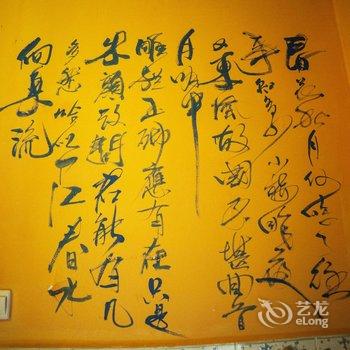 春花秋月何時了往
事知多少小樓昨夜
又東風故國不堪回首
月明中
雕欄玉砌應有在只是
朱顏改問君能有几
多愁恰似一江春水
向東流
艺龙
eLong